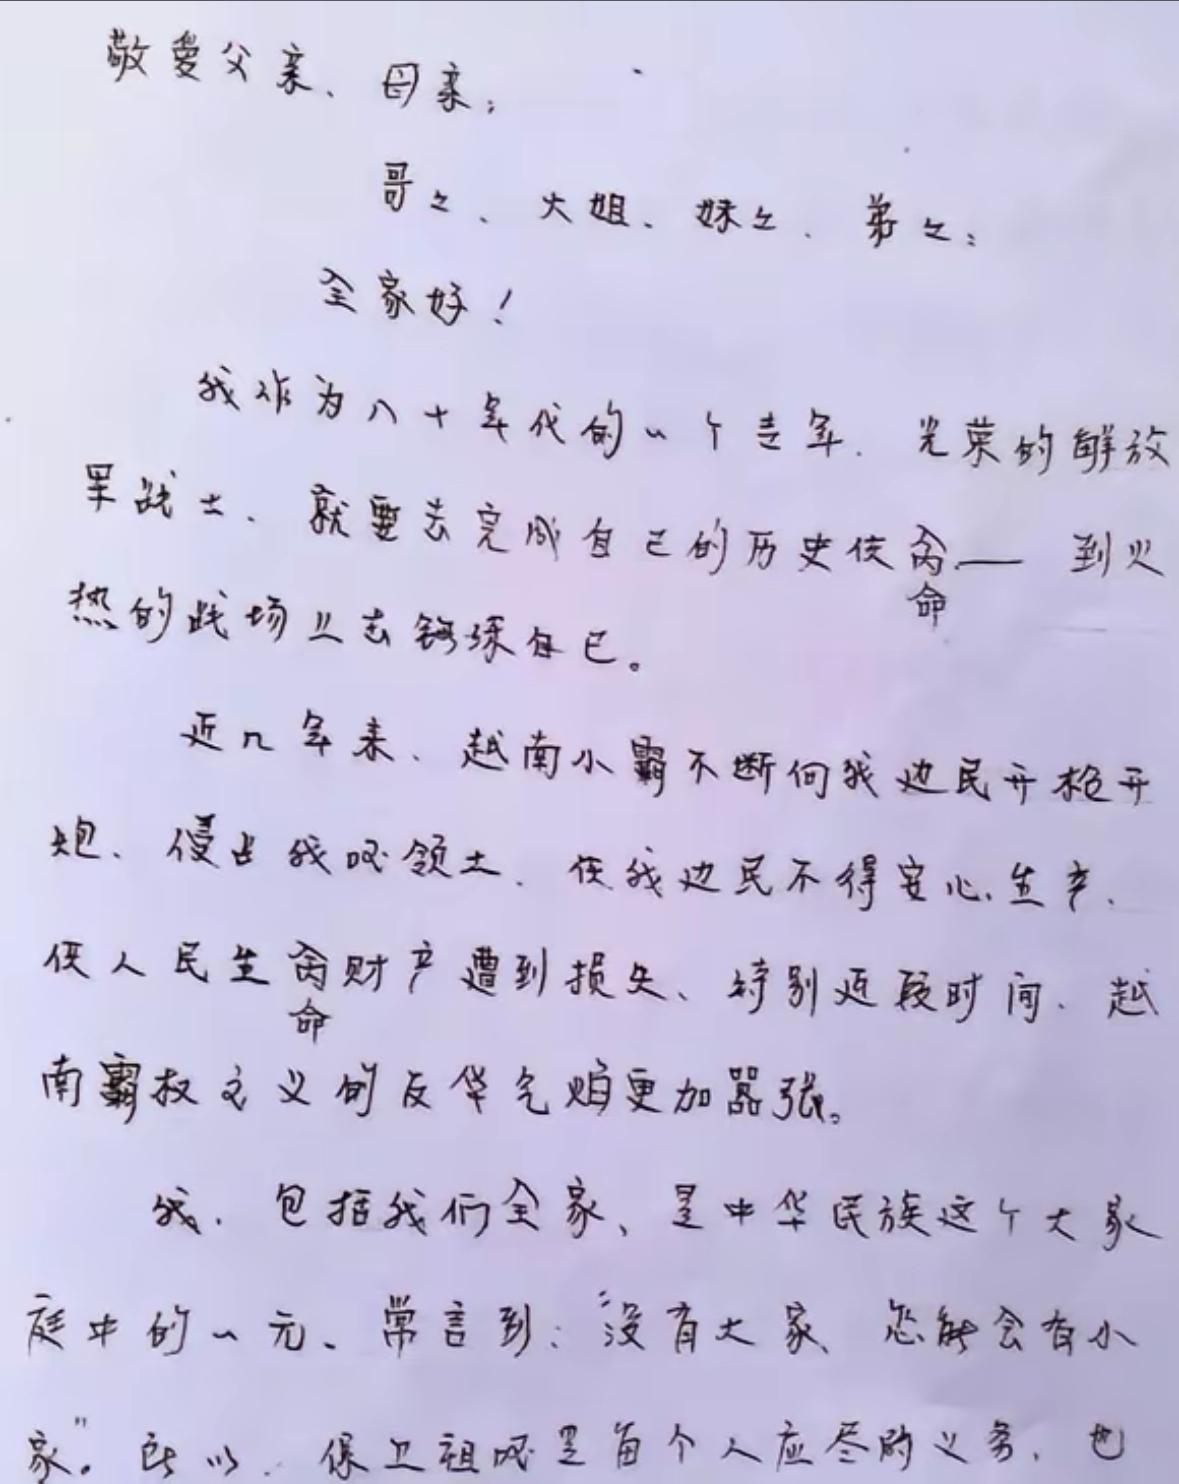 敬爱父亲、母亲：
哥々、大姐、妹々、弟々：
全家好！
我作为八十年代的一个青年、光荣的解放
军战士、就要去完成自己的历史使命——到火
命
热的战场上去锻炼自己。
近几年来、越南小霸不断向我边民开枪开
炮、侵占我国领土、使我边民不得安心生产、
使人民生命财产遭到损失、特别近段时间、越
命
南霸权主义的反华气焰更加嚣张。
我、包括我们全家、是中华民族这个大家
庭中的一元、常言到：“没有大家、怎能会有小
家”。所以、保卫祖国是每个人应尽的义务、也